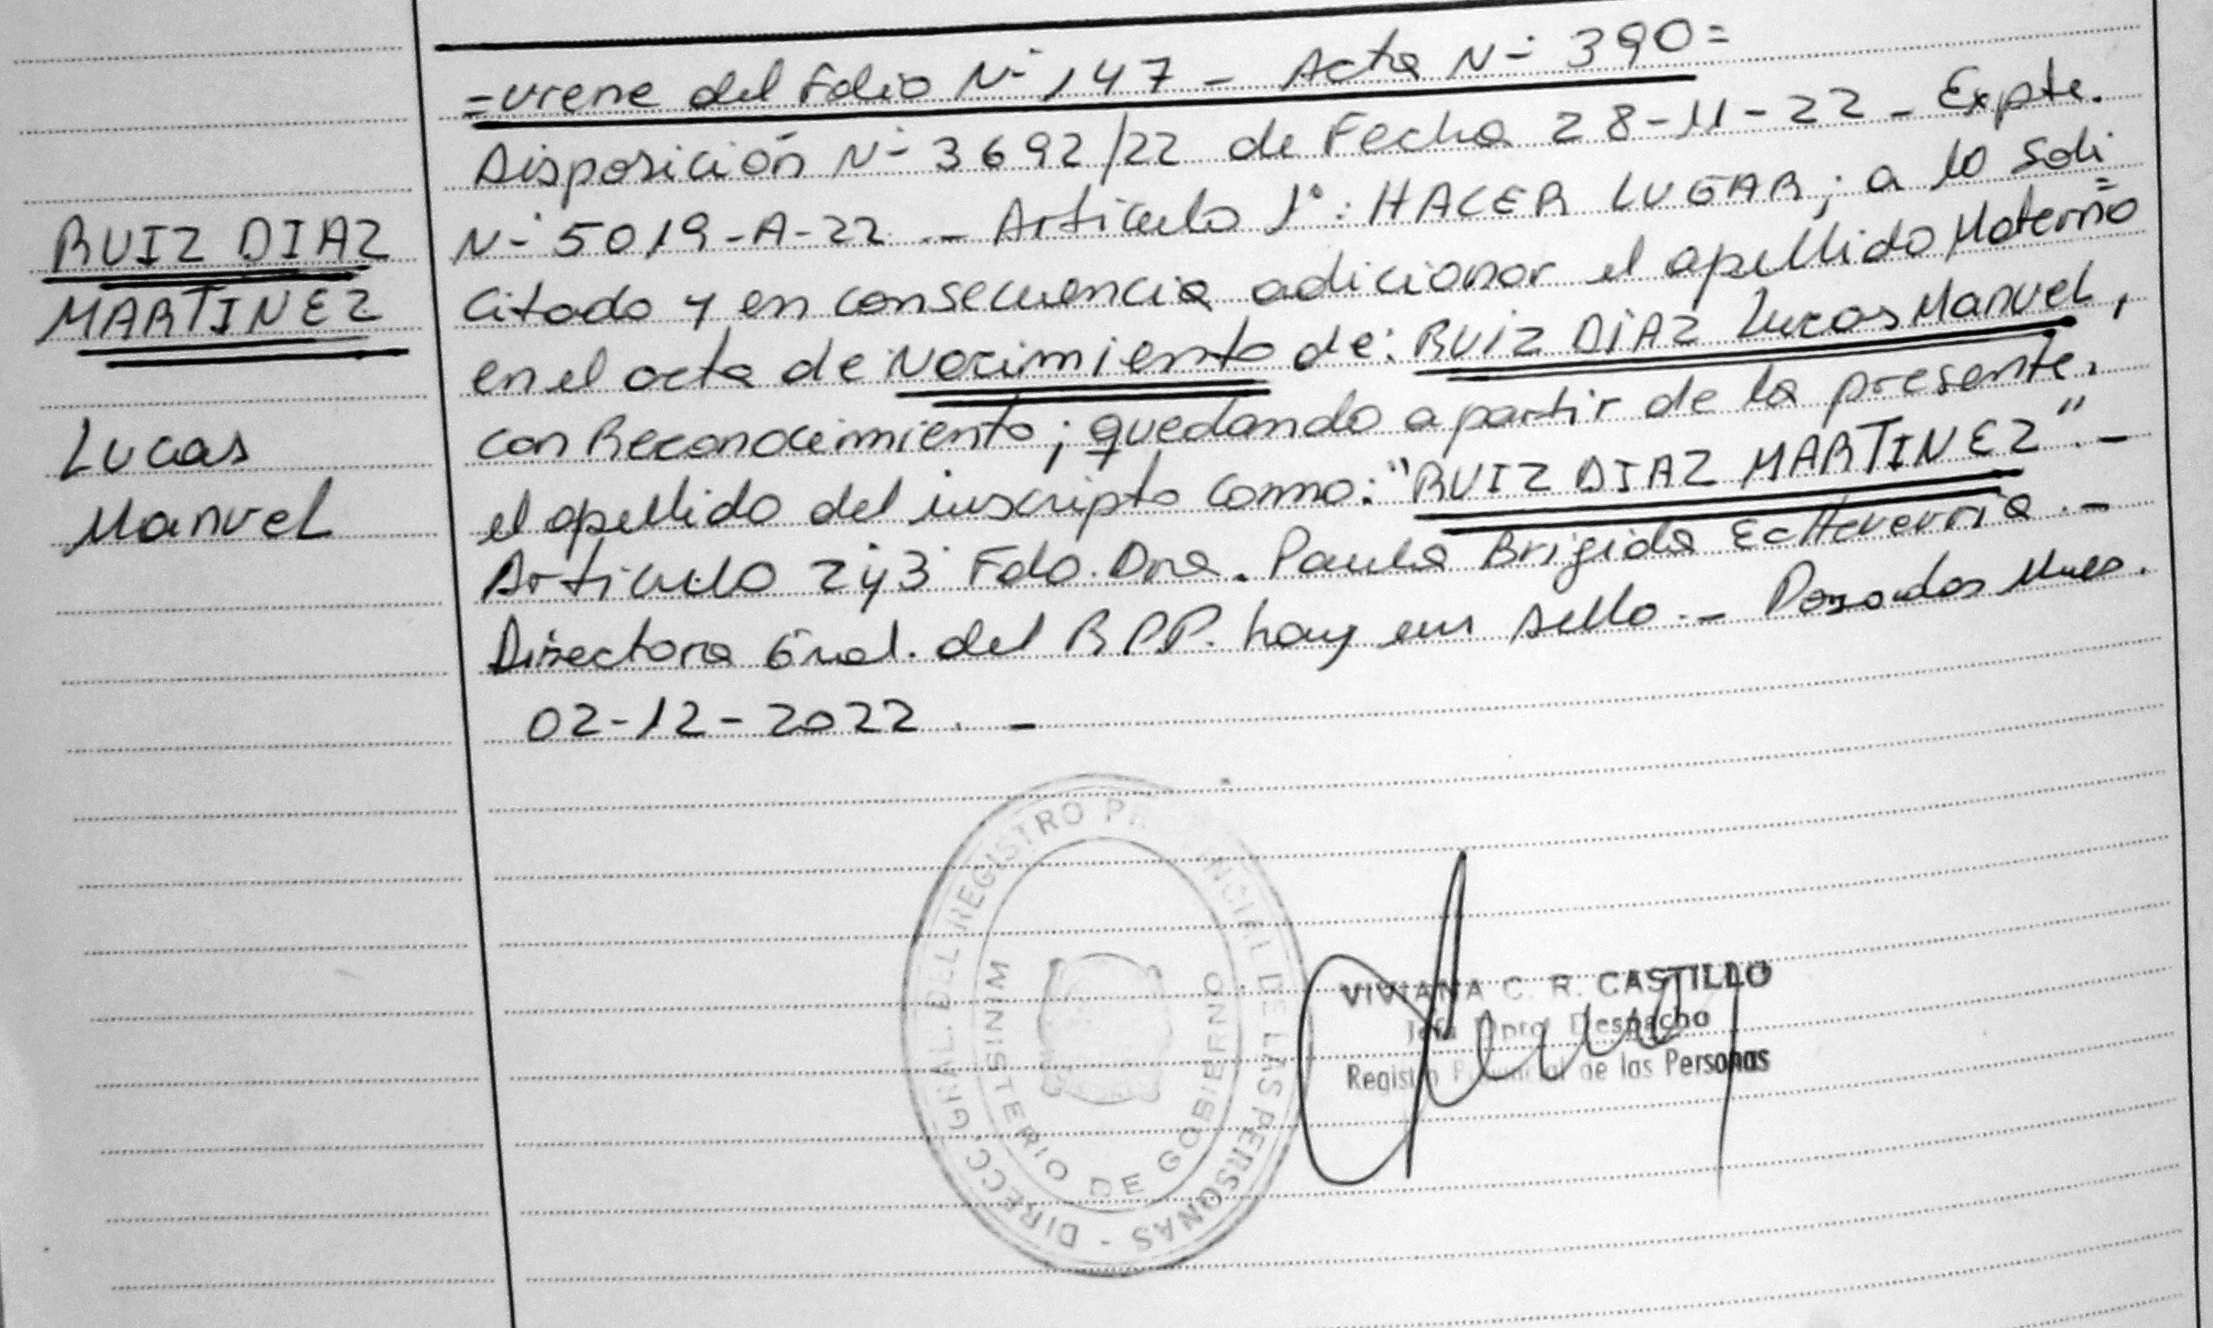 =viene del Folio N- 147 - Acta N- 390=
Disposición N- 3692/22 de Fecha 28-11-22 - Expte.
N- 5019-A-22 .- Artículo 1°: HACER LUGAR; a lo Soli=
citado y en consecuencia adicionar el apellido Materno
en el acta de Nacimiento de: RUIZ DIAZ Lucas Manuel,
con Reconocimiento; quedando a partir de la presente.
el apellido del inscripto como: "RUIZ DIAZ MARTINEZ".-
Artículo 2y3 Fdo. Dra. Paula Brigida Echeverria.-
Directora Gral. del R.P.P. hay un sello.- Posadas Mnes.
02-12-2022.-
RUIZ DIAZ
MARTINEZ
Lucas
Manuel
DIRECC. GRAL. DEL REGISTRO PROVINCIAL DE LAS PERSONAS -
MINISTERIO DE GOBIERNO
VIVIANA C. R. CASTILLO
Jefa Dpto. Despacho
Registro Provincial de las Personas